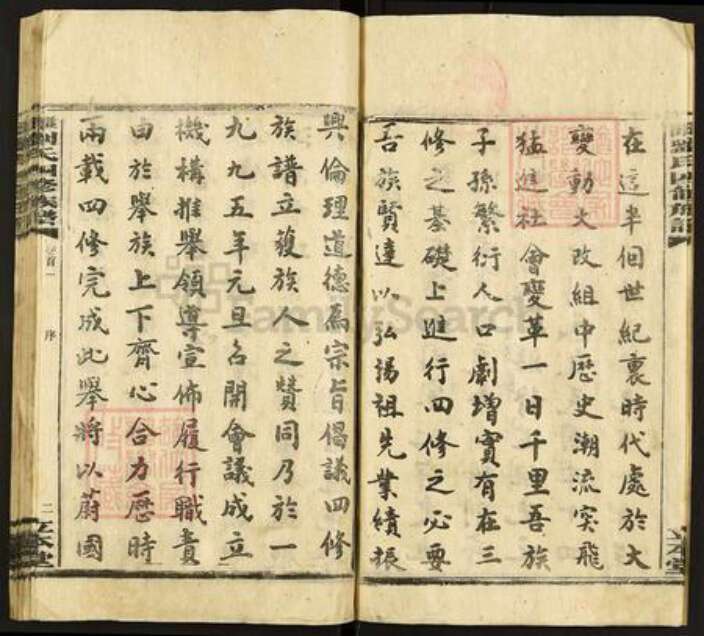 在這半個世紀裏時代處於大
變動大改組中歷史潮流突飛
猛進社會變革一日千里吾族
子孫繁衍人口劇增實有在三
修之基礎上進行四修之必要
吾族賢達以弘揚祖先業績振
興倫理道德為宗旨倡議四修
族譜立獲族人之贊同乃於一
九九五年元旦召開會議成立
機構推舉領導宣佈履行職責
由於舉族上下齊心合力歷時
兩載四修完成此舉將以蔚國
劉氏四修族譜
首一
序
二
立本堂
FamilySearch